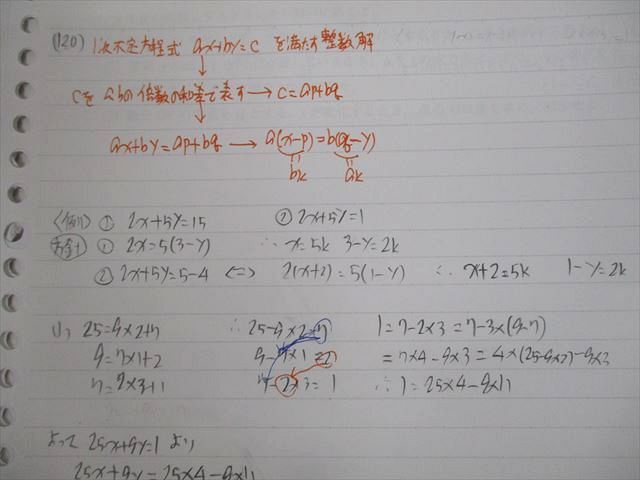 (120) 1次不定方程式 ax+by=c を満たす整数解
↓
cをa,bの倍数の和差で表す → c=ap+bq
↓
ax+by=ap+bq → a(x-p)=b(q-y)
bk ak
〈例〉 ① 2x+5y=15 ② 2x+5y=1
① 2x=5(3-y) ∴ x=5k 3-y=2k
② 2x+5y=5-4 ⇔ 2(x+2)=5(1-y) ∴ x+2=5k 1-y=2k
(1) 25=9×2+7 ∴ 25-9×2=7 1=7-2×3=7-3×(9-7)
9=7×1+2 9-7×1=2 =7×4-9×3=4×(25-9×2)-9×3
7=2×3+1 7-2×3=1 ∴ 1=25×4-9×11
よって 25x+9y=1 より
25x+9y=25×4-9×11